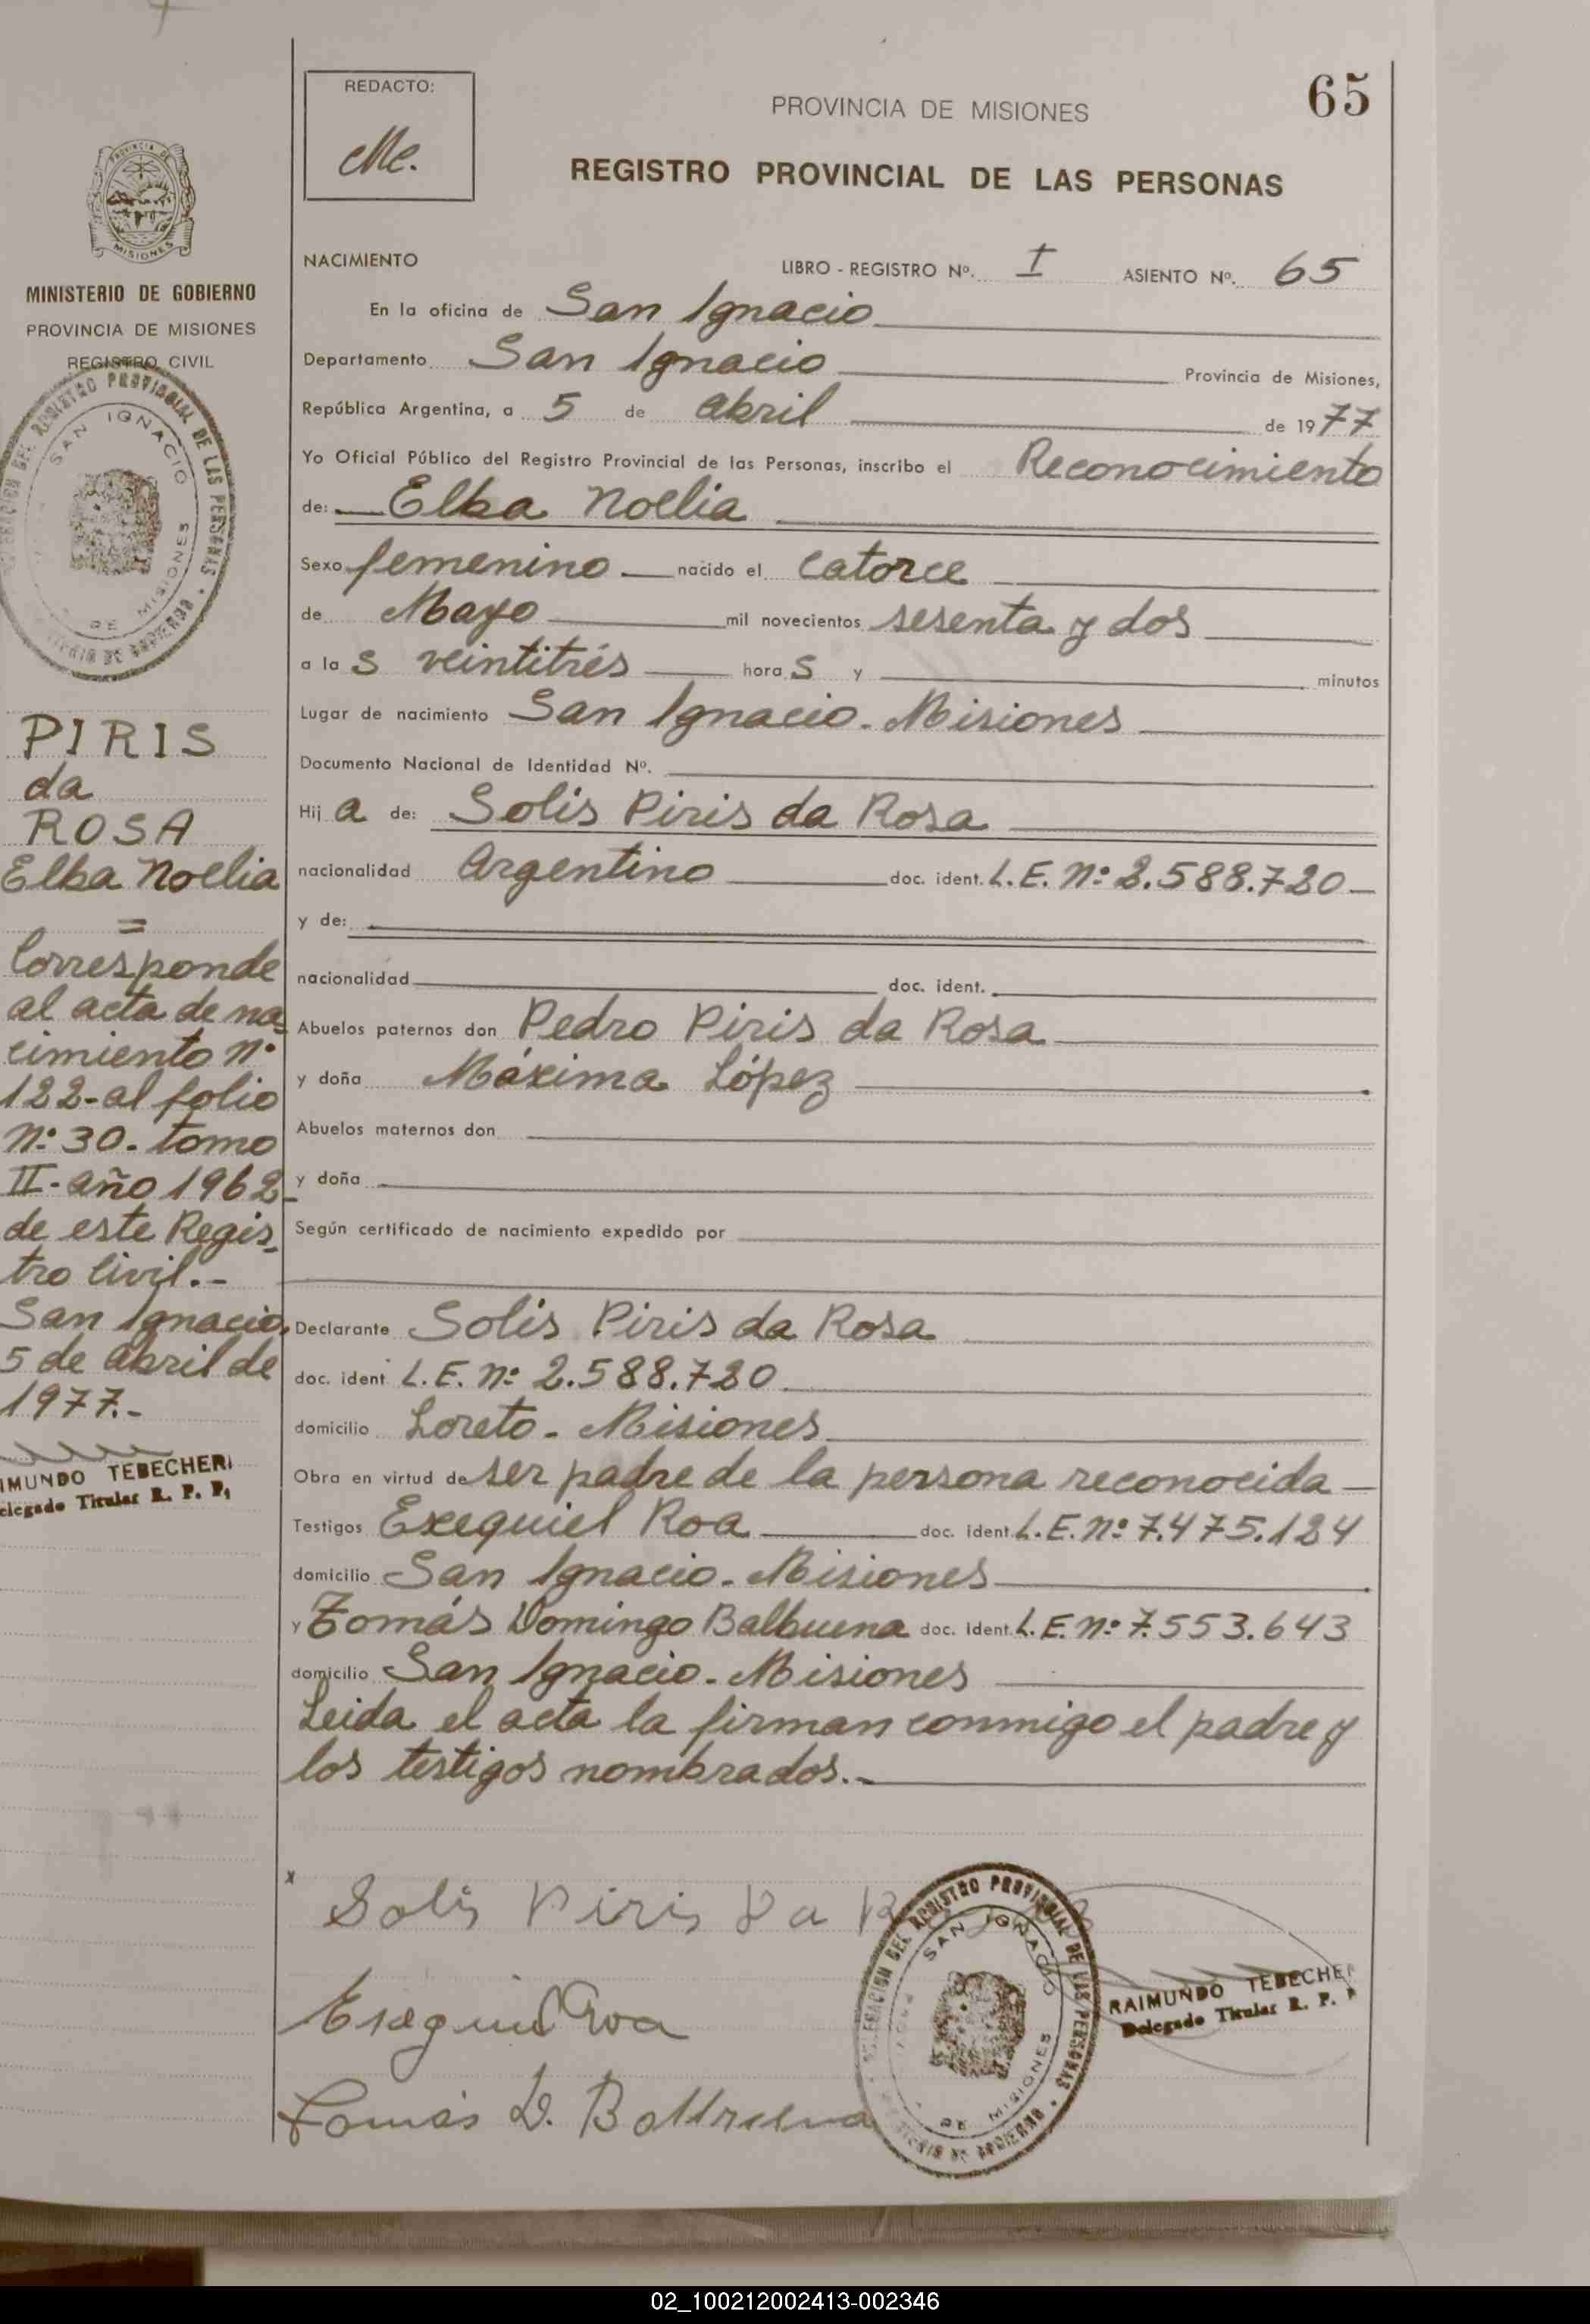 65
REDACTO:
Me.
PROVINCIA DE MISIONES
REGISTRO PROVINCIAL DE LAS PERSONAS
PROVINCIA DE
MISIONES
MINISTERIO DE GOBIERNO
PROVINCIA DE MISIONES
REGISTRO CIVIL
REGISTRO PROVINCIAL DE LAS PERSONAS
SAN IGNACIO
DE MISIONES
PIRIS
da
ROSA
Elba Noelia
=
Corresponde
al acta de na-
cimiento n:
122- al folio
n: 30- tomo
II- año 1962-
de este Regis-
tro Civil.-
San Ignacio,
5 de abril de
1977.-
IMUNDO TEBECHERI
elegado Titular R. P. P.
NACIMIENTO LIBRO - REGISTRO Nº. I ASIENTO Nº. 65
En la oficina de San Ignacio
Departamento San Ignacio Provincia de Misiones,
República Argentina, a 5 de abril de 1977
Yo Oficial Público del Registro Provincial de las Personas, inscribo el Reconocimiento
de: Elba Noelia
Sexo femenino nacido el catorce
de Mayo mil novecientos sesenta y dos
a la s veintitrés hora s y minutos
Lugar de nacimiento San Ignacio. Misiones
Documento Nacional de Identidad Nº.
Hij a de: Solis Piris da Rosa
nacionalidad Argentino doc. ident. L.E. n: 2.588.720-
y de:
nacionalidad doc. ident.
Abuelos paternos don Pedro Piris da Rosa
y doña Máxima López
Abuelos maternos don
y doña
Según certificado de nacimiento expedido por
Declarante Solis Piris da Rosa
doc. ident L.E. n: 2.588.720
domicilio Loreto - Misiones
Obra en virtud de ser padre de la persona reconocida-
Testigos Exequiel Roa doc. ident L.E. n: 7.475.124
domicilio San Ignacio. Misiones
y Tomás Domingo Balbuena doc. ident. L.E. n: 7.553.643
domicilio San Ignacio - Misiones
Leida el acta la firman conmigo el padre y
los testigos nombrados.-
x Solis Piris Da
Exequiel Roa
Tomás D. Balbuena
DELEGACION DEL REGISTRO PROVINCIAL DE LAS PERSONAS
SAN IGNACIO
DE MISIONES
RAIMUNDO TEBECHER
Delegado Titular R. P. P
02_100212002413-002346